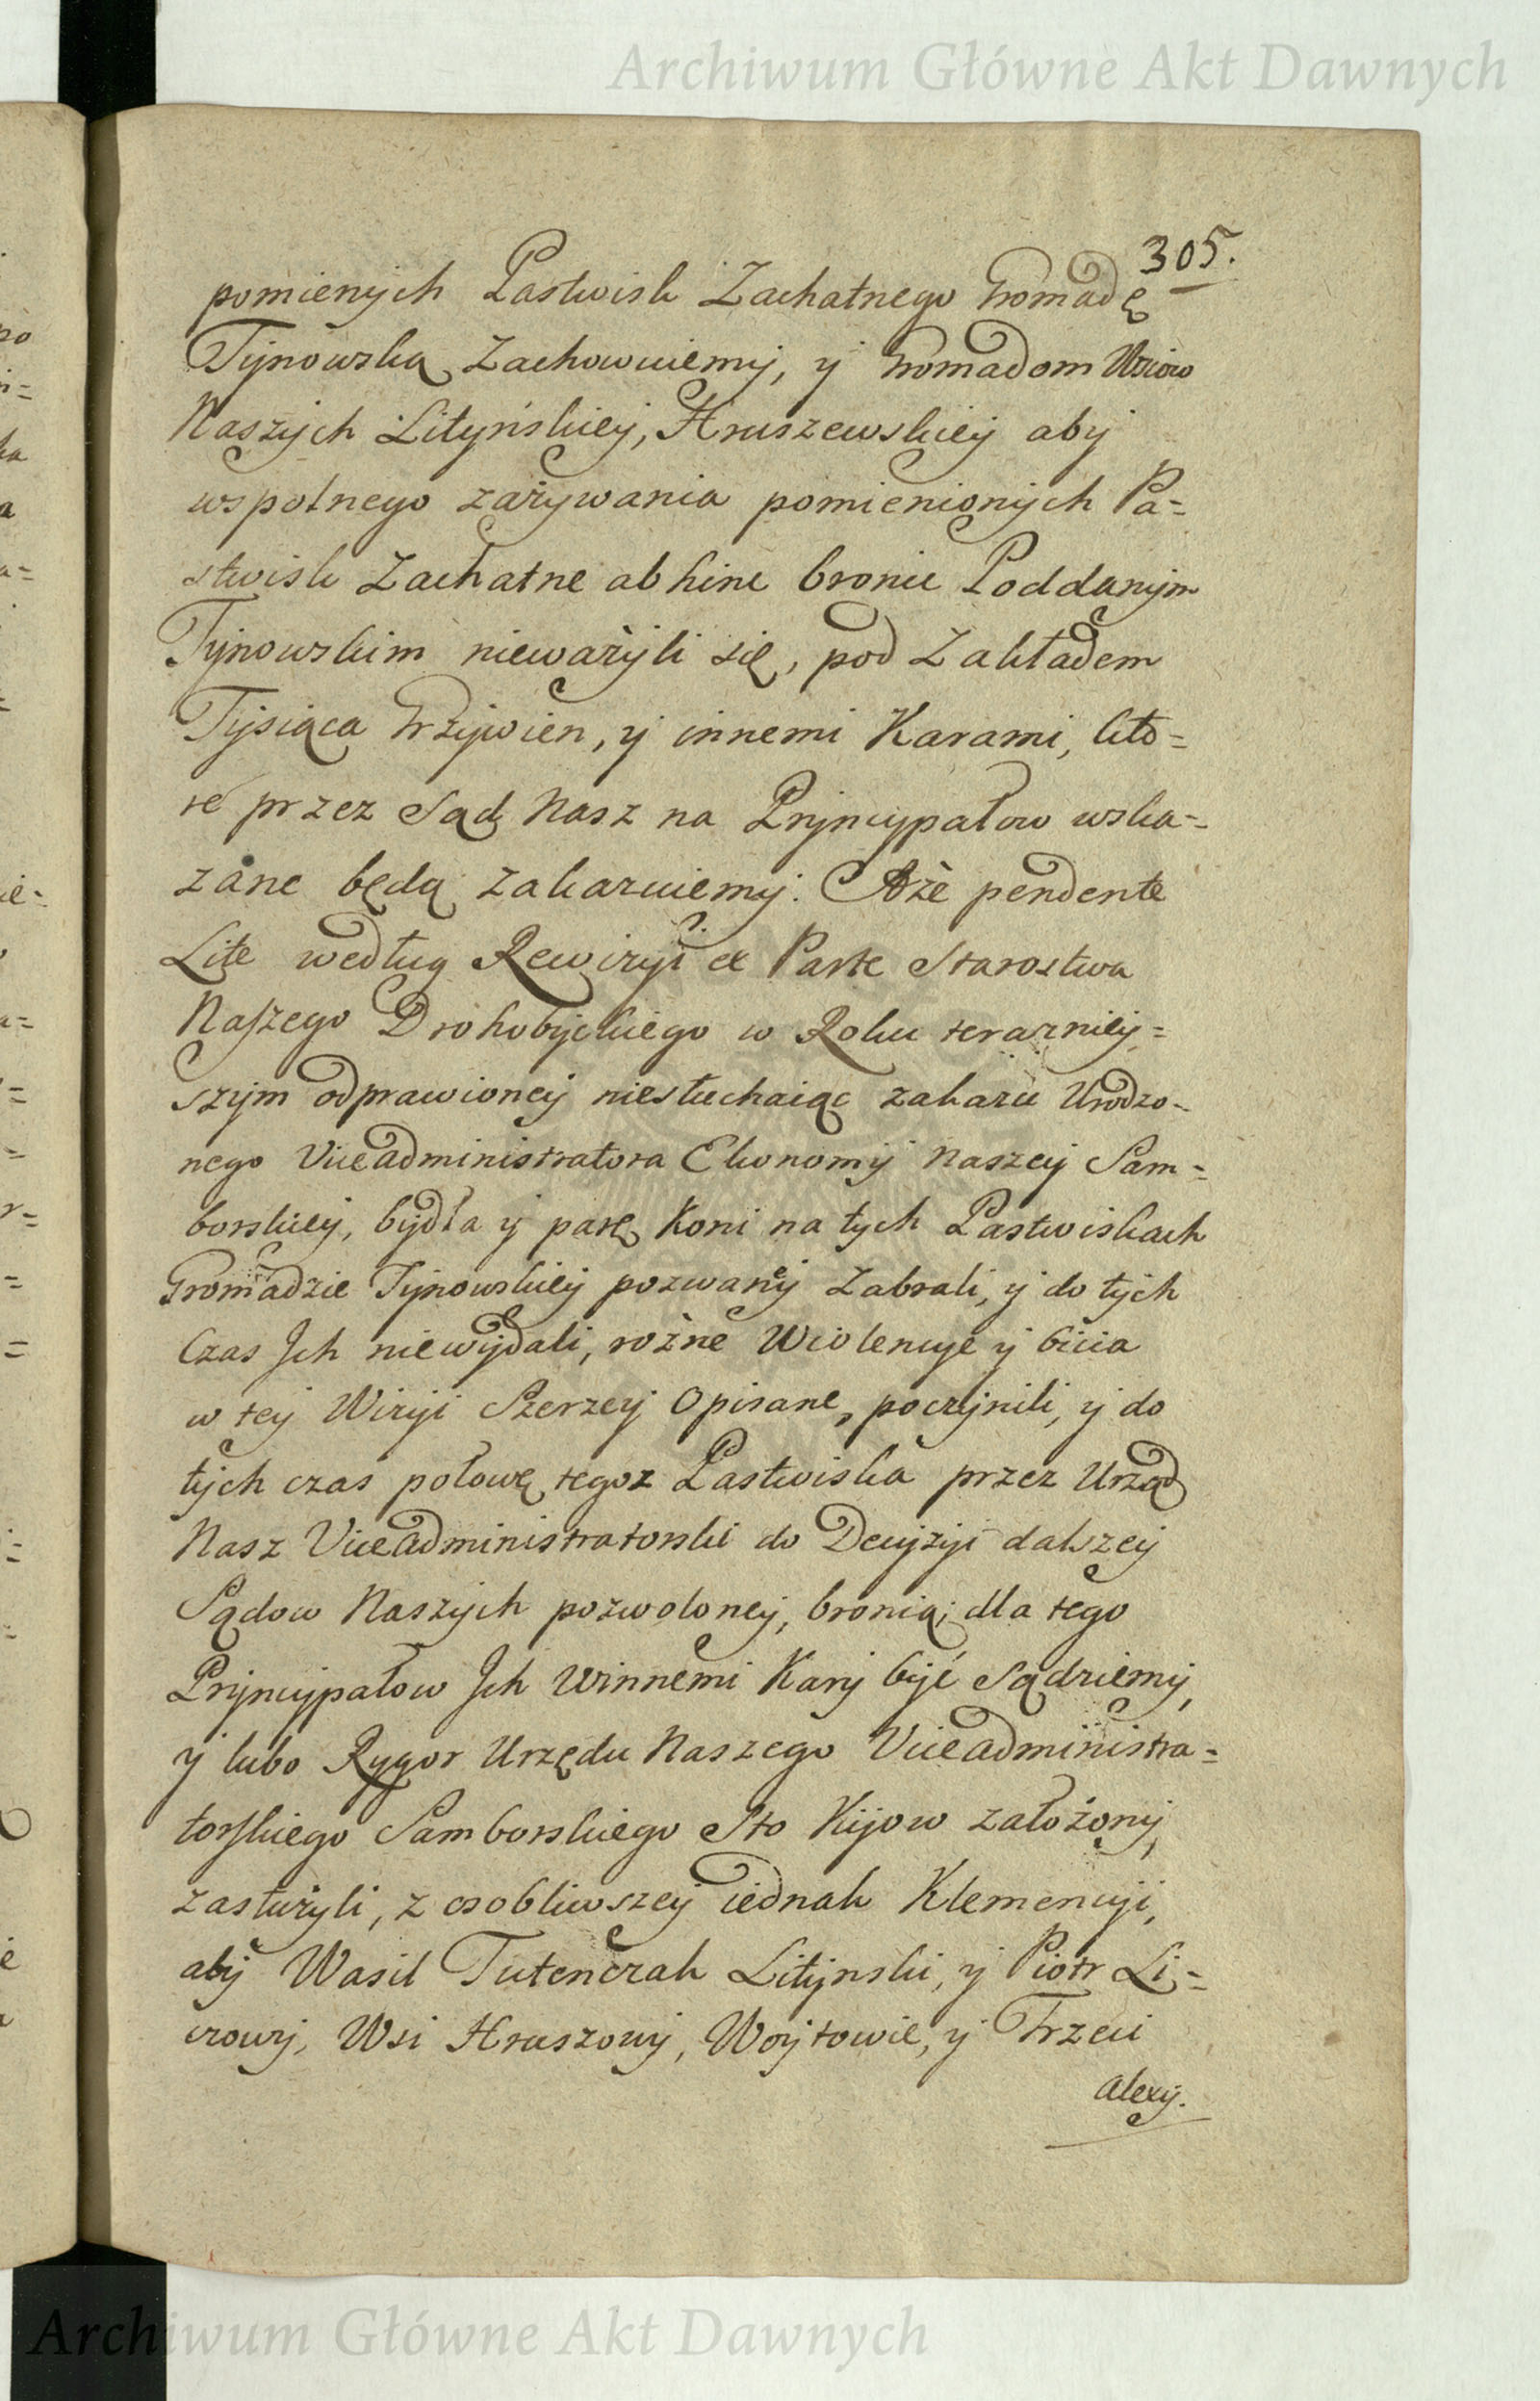 Archiwum Główne Akt Dawnych
305.
pomienych Pastwisk Zachatnego Gromadę
Tynowską Zachowuiemy, y Gromadom Wsiow
Naszych Lityńskiey, Hruszewskiey aby
wspolnego zażywania pomienionych Pa=
stwisk Zachatne abhinc bronic Poddanym
Tynowskim nieważyli się, pod Zakładem
Tysiąca Grzywien, y innemi Karami, kto=
re przez Sąd Nasz na Pryncypałow wska=
zane będą zakazuiemy. A że pendente
Lite według Rewizyi ex Parte Starostwa
Naszego Drohobyckiego w Roku teraźniey=
szym odprawioney niesłuchaiąc zakazu Urodzo=
nego Viceadministratora Ekonomij Naszey Sam=
borskiey, bydła y parę Koni na tych Pastwiskach
Gromadzie Tynowskiey pozwany Zabrali, y do tych
Czas Jch niewydali, rożne Wiolencye y bicia
w tey Wizyi Szerzey Opisane, poczynili, y do
tych czas połowę tegoz Pastwiska przez Urząd
Nasz Viceadministratorski do Decyzyi dalszey
Sądow Naszych pozwoloney, bronią; dla tego
Pryncypałow Jch Winnemi Kary być Sądziemy,
y lubo Rygor Urzędu Naszego Viceadministra=
torskiego Samborskiego Sto Kijow założony,
zasłużyli, z osobliwszey iednak Klemencyi,
aby Wasil Tutenczak Lityński, y Piotr Li=
czowy, Wsi Hruszowy, Woytowie, y Trzeci
Alexy.
Archiwum Główne Akt Dawnych